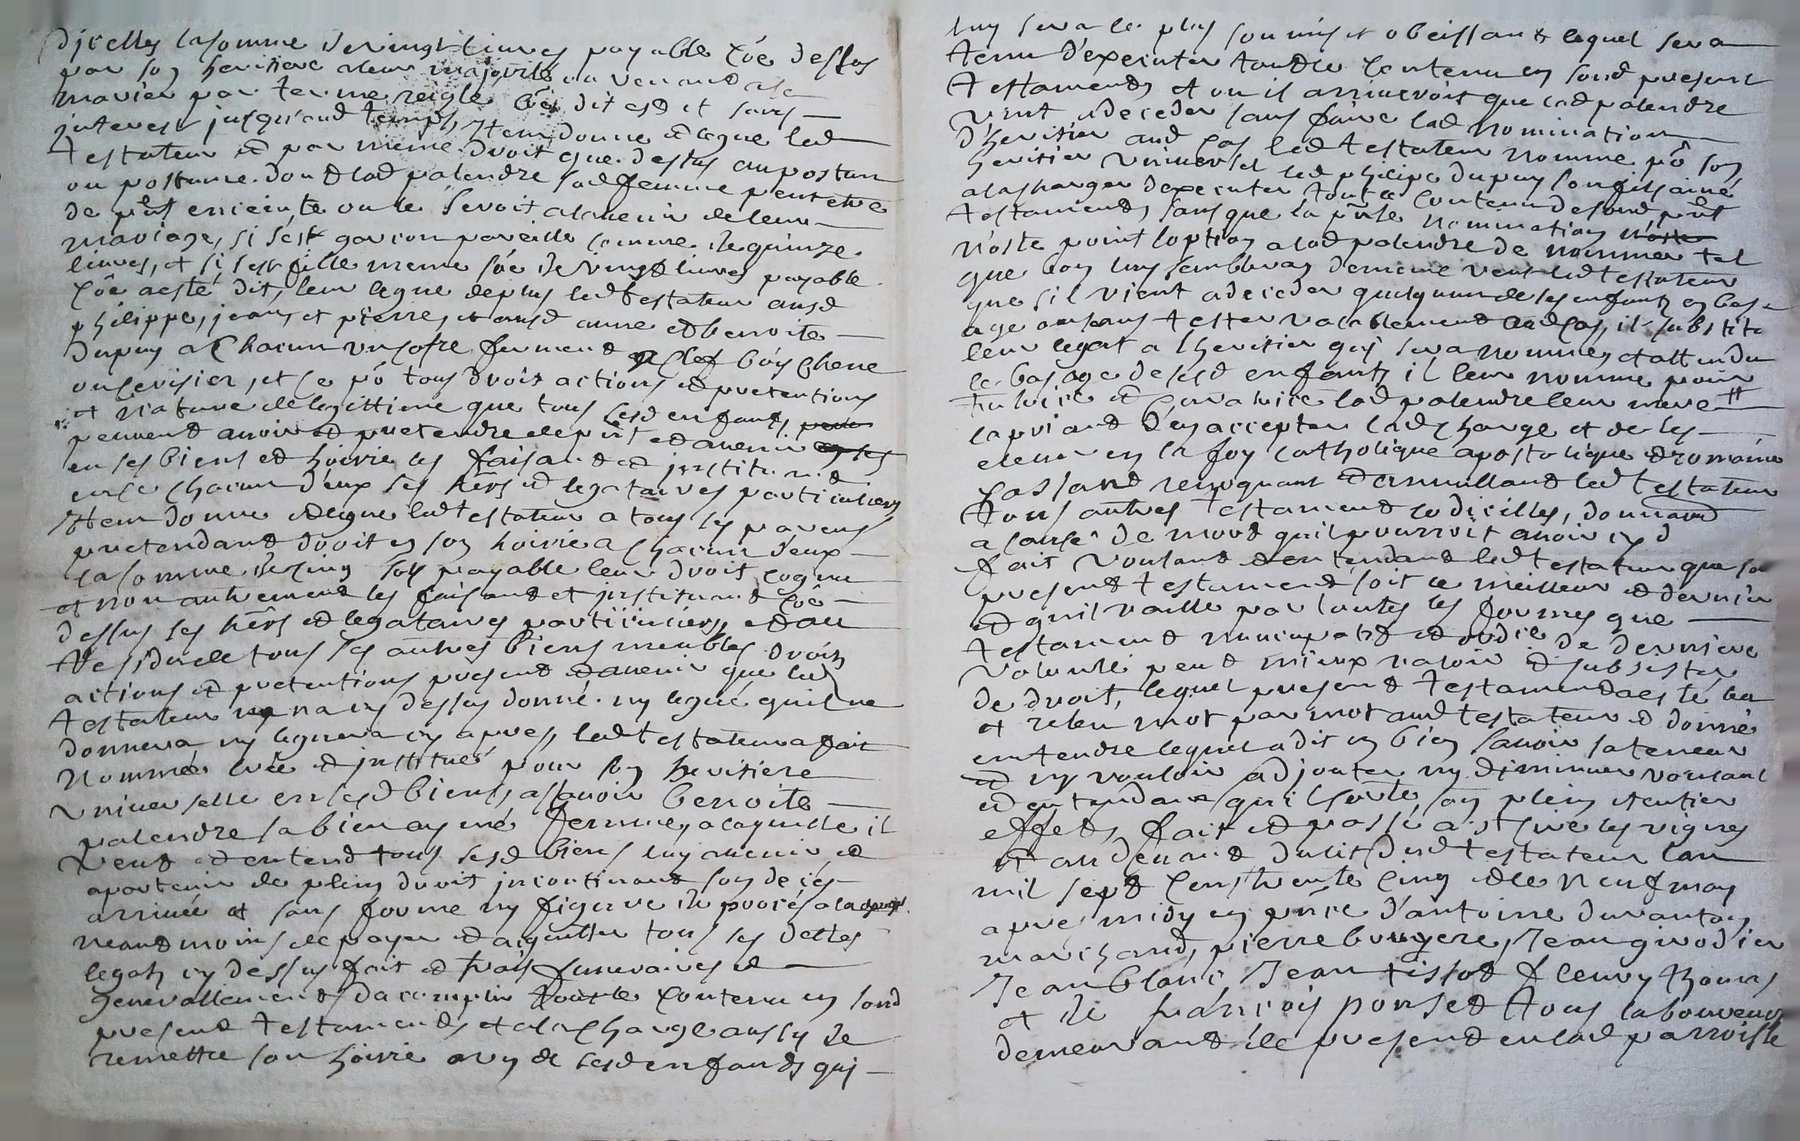 d'icelles la somme de vingt livres payable cõe dessus
par son heritiere a leur majorité ou venant a se
marier par terme reiglé cõe dit est et sans
interest jusqu'aud temps, Item donne et legue led
testateur et par meme droit que dessus au postume
ou postume dont lad palendre sad femme peut etre
de pñt enceinte ou le seroit a l'avenir de leur
mariage, si s'est garcon pareille somme de quinze
livres, et si s'est fille meme sõe de vingt livres payable
cõe a esté dit, leur legue de plus led testateur ausd
philippe, jean, et pierre, et ausd anne et benoite
Dupuy a chacun un cofre fermant a clef bois chene
ou serisier, et ce põ tous droits actions et pretentions
et nature de legittime que tous sesd enfants
peuvent avoir et pretendre de pñt et avenir
en ses biens et hoirie les faisant et instituant
en ce chacun d'eux ses hẽrs et legataires particuliers
Item donne et legue led testateur a tous ses parens
pretendant droit en son hoirie a chacun d'eux
la somme de cinq sols payable leur droit cognu
et non autrement les faisant et instituant cõe
dessus ses hẽrs et legataires particuliers, et au
Residu de tous ses autres biens meubles droits
actions et pretentions present et avenir que led
testateur n'a cy dessus donné ny legué qu'il ne
donnera ny leguera cy apres, led testateur a fait
nommé créé et institué pour son heritiere
universelle en sesd biens, assavoir benoite
palendre sa bien aymé femme, a laquelle il
veut et entend tous sesd biens luy avenir et
apartenir de plein droit incontinant son deces
arrivé et sans forme ny figure de proces a la charge
neantmoins de payer et aquitter tous ses dettes
legats cy dessus fait et frais funeraires et
generallement d'acomplir tout le contenu en sond
present testament, et a la charge aussy de
remettre son hoirie a un de sesd enfants qui
luy sera le plus soumis et obeissant lequel sera
tenu d'executer tout le contenu en sond present
testament, et ou il arriveroit que lad palendre
vint a deceder sans faire lad nomination
d'heritier aud cas led testateur nomme põ son
heritier universel led philipe dupuy son fils ainé
a la charge d'executer tout le contenu de sond pñt
testament, sans que la pñte nomination n'oste
n'oste point l'option a lad palendre de nommer tel
que bon luy semblera, de meme veut led testateur
que s'il vient a deceder quelqu'un de ses enfants en bas
age ou sans tester valablement aud cas, il substitue
leur legat a l'heritier qui sera nommé, et attendu
le bas age de sesd enfants il leur nomme pour
tutrice et curatrice lad palendre leur mere
la priant d'en accepter lad charge et de les
elever en la foy catholique apostolique et romaine
cassant revoquant et annullant led testateur
tous autres testament codicilles, donnaõn
a cause de mort qu'il pourroit avoir cy d
fait voulant et entendant led testateur que son
present testament soit le meilleur et dernier
et qu'il vaille par toutes les formes que
testament nuncupatif et ordre de derniere
volonté peut mieux valoir et subsister
de droit, lequel present testament a esté leu
et releu mot par mot aud testateur et donné
entendre lequel a dit en bien savoir sa teneur
et n'y vouloir adjouter ny diminuer voulant
et entendant qu'il sorte, son plein et entier
effet, fait et passé a st cire les vignes
et au devant du lit dud testateur l'an
mil sept cent trente cinq et le neuf may
apres midy en pñce d'antoine durantay
marchand, pierre bruyere, Jean girodier
Jean blanc Jean tissot fleury thomas
et de françois ponset tous laboureurs
demeurant de present en lad parroisse